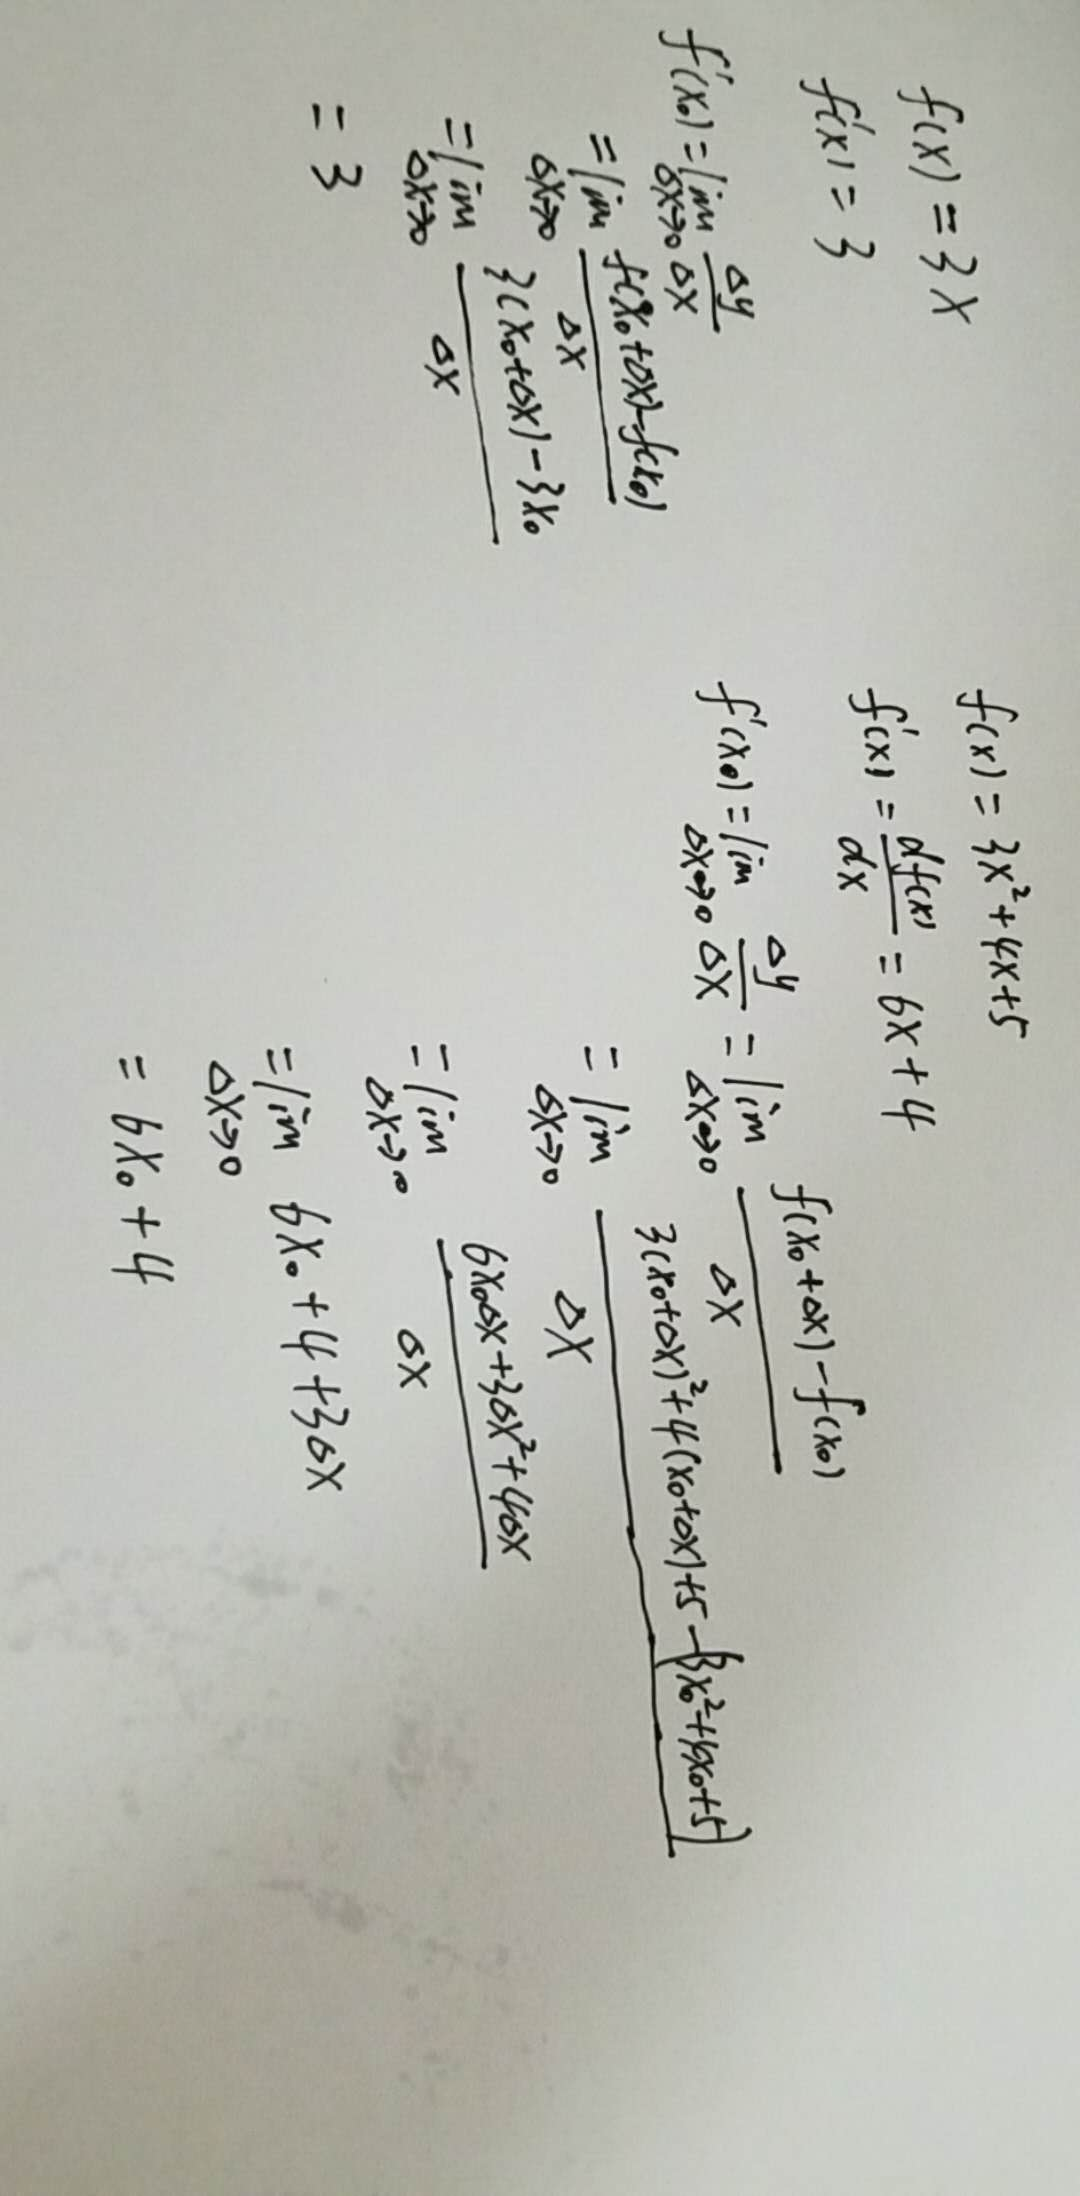 f(x) = 3x
f'(x) = 3
f'(x₀) = lim Δx→0 Δy/Δx
= lim Δx→0 (f(x₀+Δx)-f(x₀))/Δx
= lim Δx→0 (3(x₀+Δx)-3x₀)/Δx
= 3
f(x) = 3x²+4x+5
f'(x) = df(x)/dx = 6x+4
f'(x₀) = lim Δx→0 Δy/Δx = lim Δx→0 (f(x₀+Δx)-f(x₀))/Δx
= lim Δx→0 (3(x₀+Δx)²+4(x₀+Δx)+5-(3x₀²+4x₀+5))/Δx
= lim Δx→0 (6x₀Δx+3Δx²+4Δx)/Δx
= lim Δx→0 6x₀+4+3Δx
= 6x₀+4